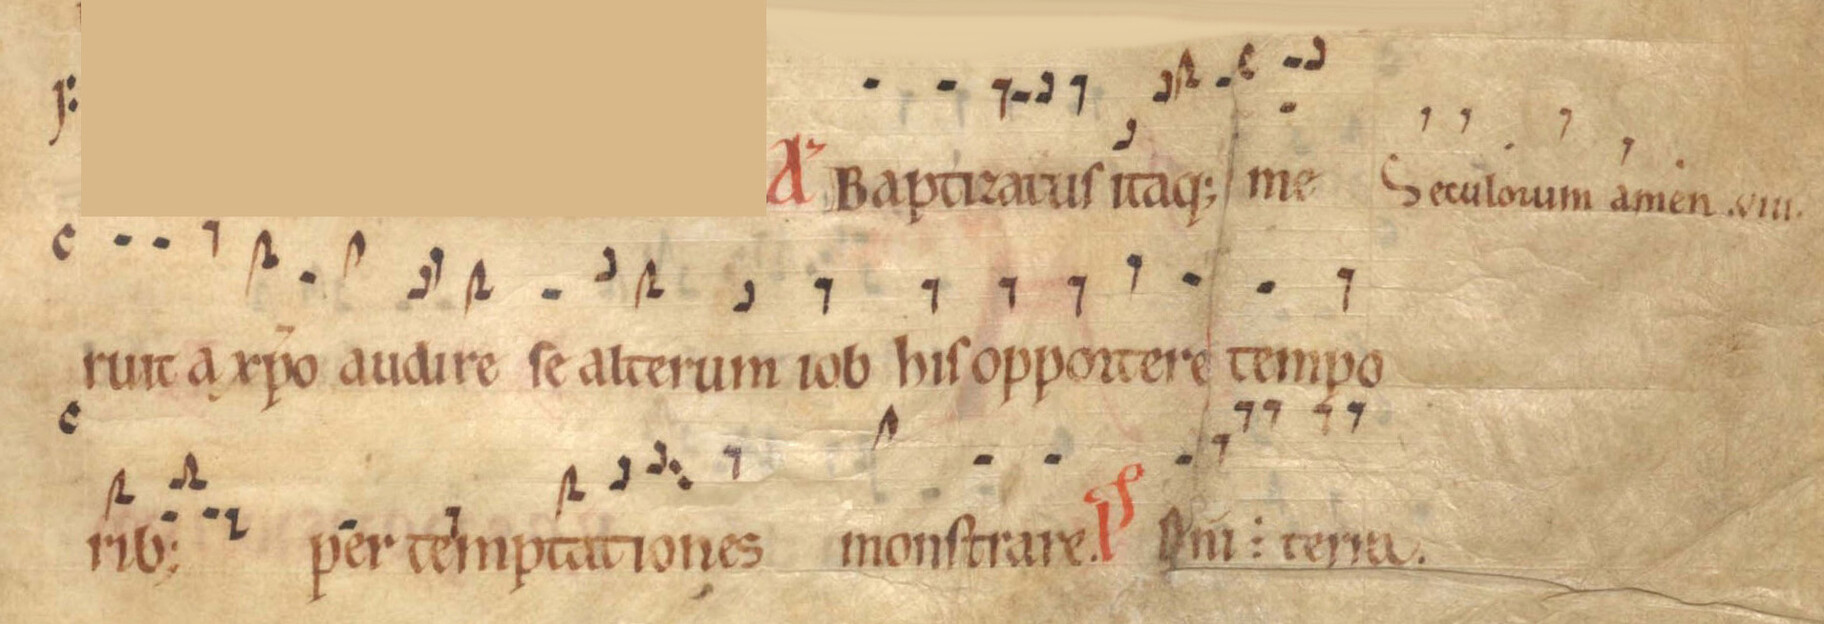 A Baptizatus itaq; me Seculorum amen .viii.
ruit a xp̄o audire se alterum iob his opportere tempo
rib; per temptationes monstrare. Ps Dn̄i : terra.